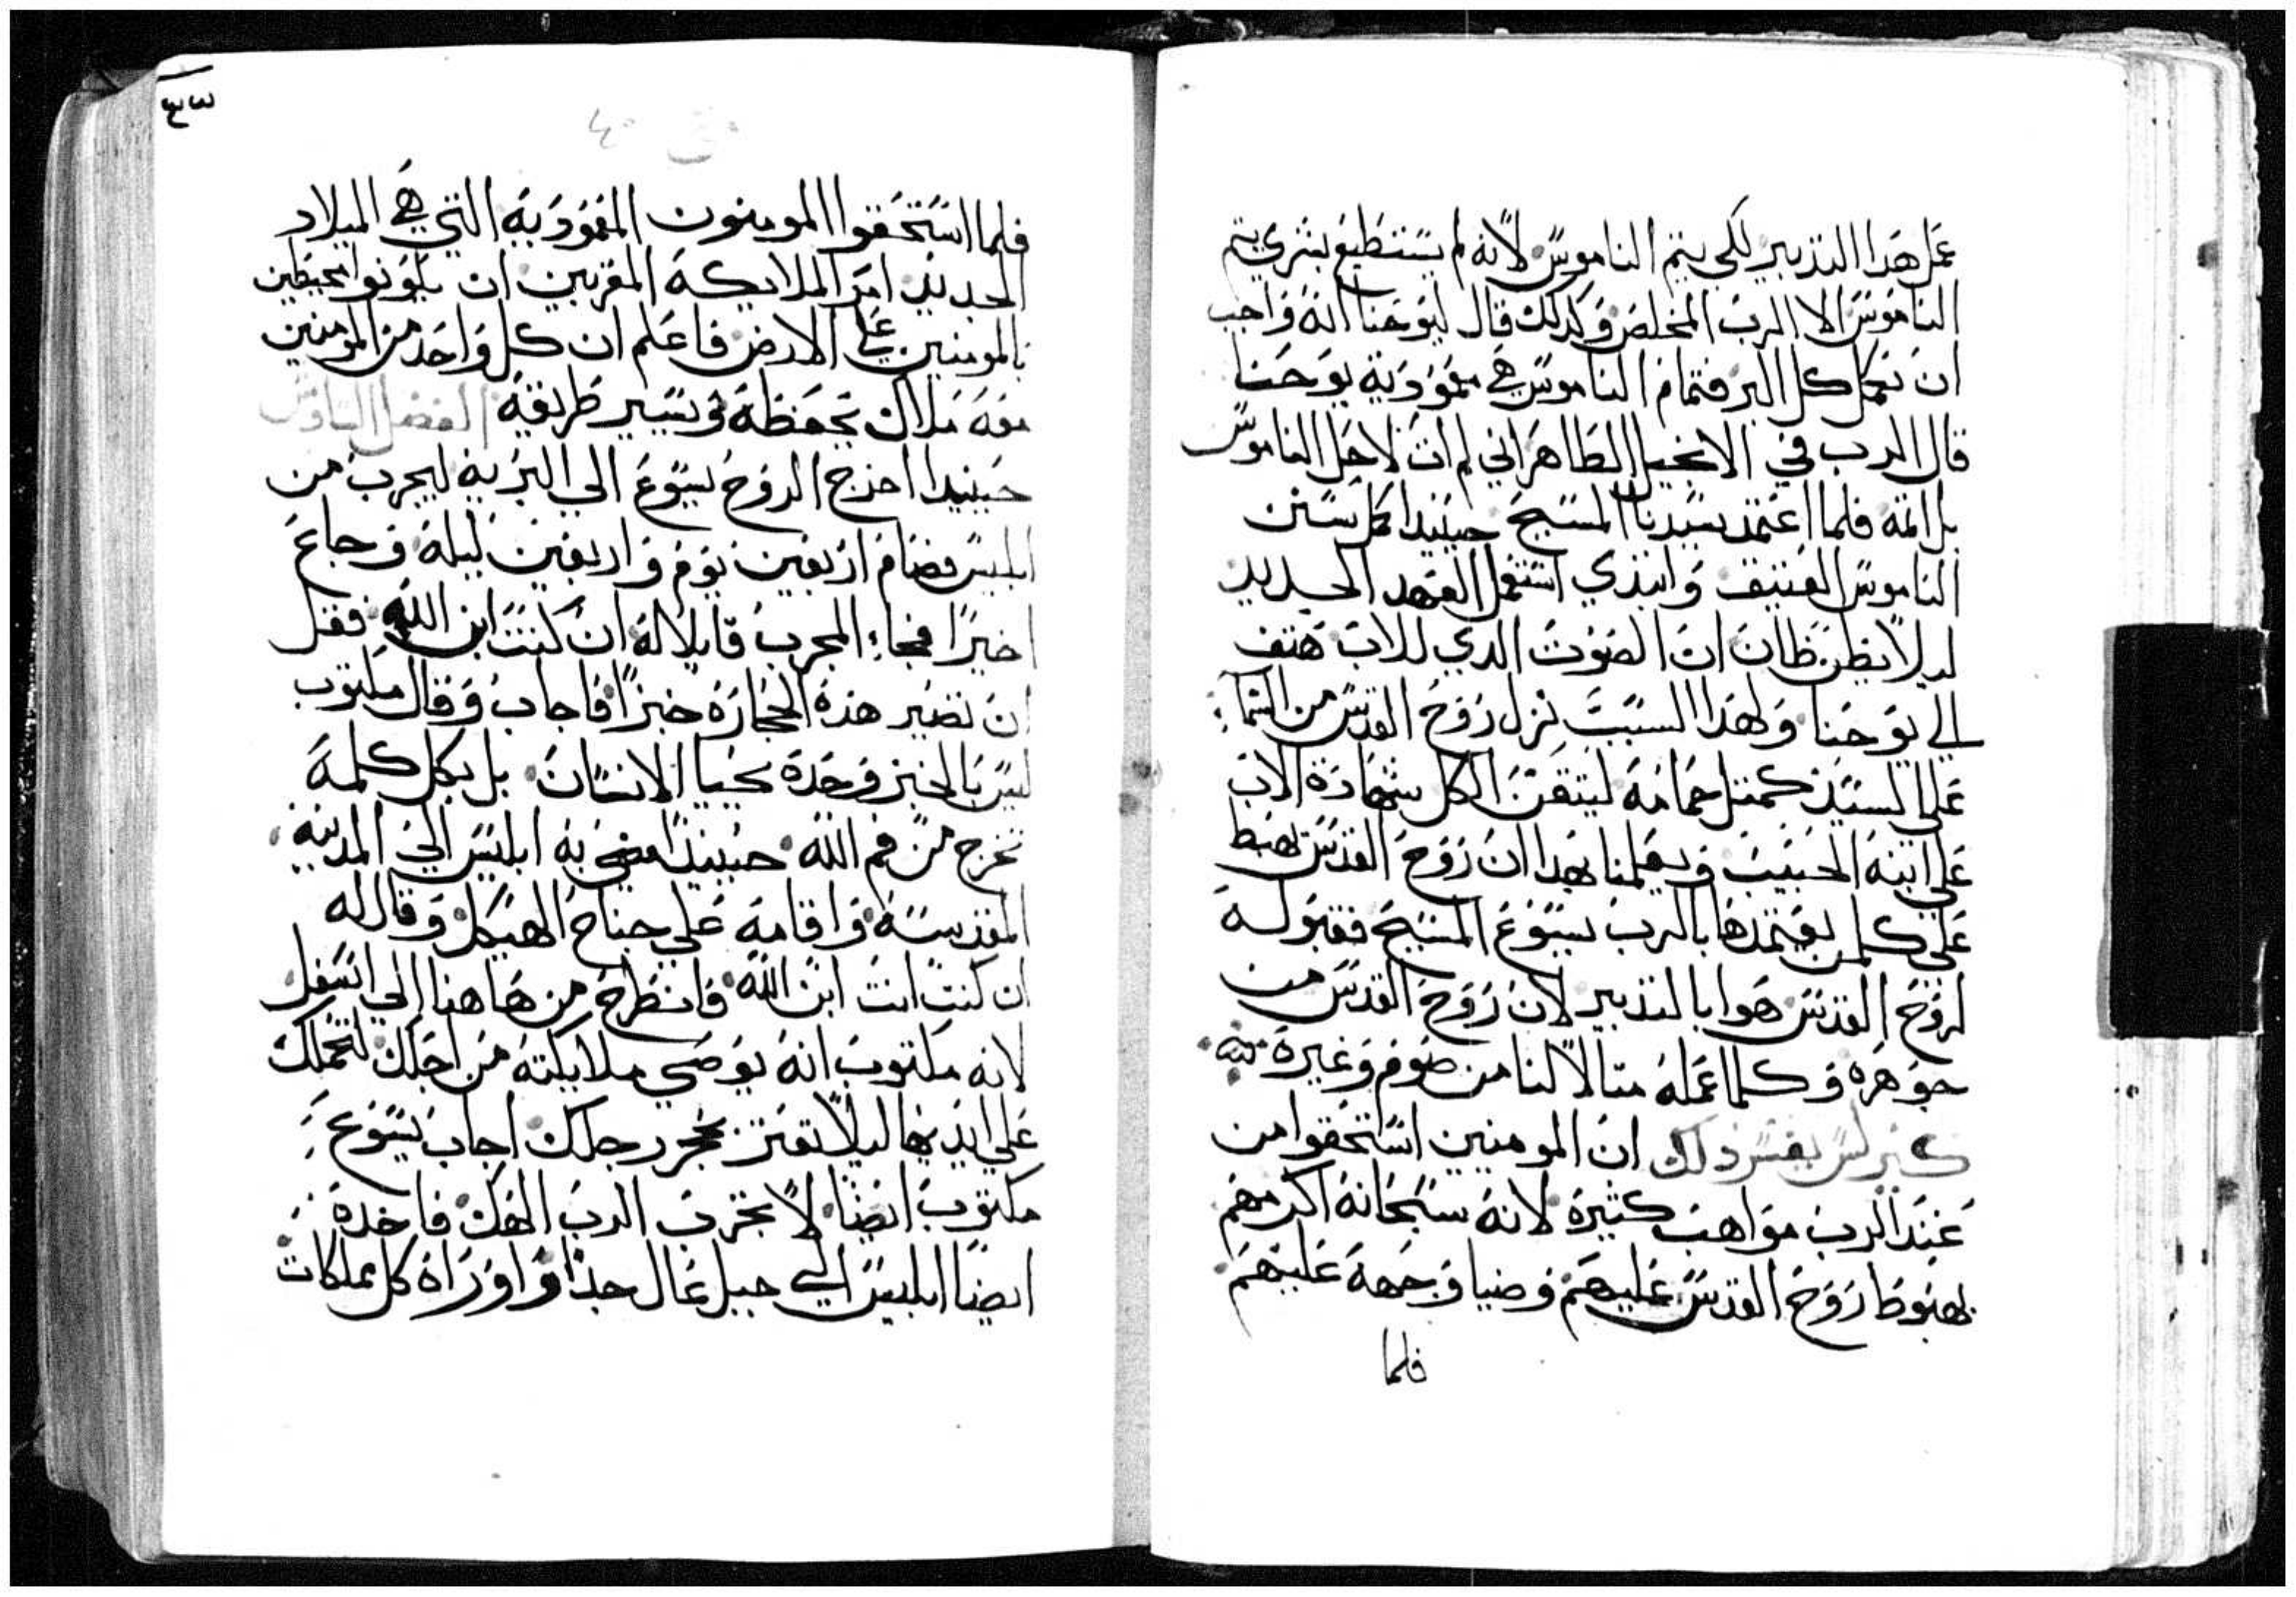 عمل هدا التدبير لكي يتم الناموس لانه لم يستطيع بشري يتم
الناموس الا الرب المخلص وكدلك قال ليوحنا انه واجب
ان نكمل كل البر فتمام الناموس هي معمودية يوحنا
قال الرب في الانجيل الطاهر اني لم ات لاحل الناموس
بل اتمه فلما اعتمد سيدنا المسيح حينيدا كمل سنن
الناموس العتيق وابتدي استعمل العهد الجديد
ليلا يظن ظان ان الصوت الدي للاب هتف
الي يوحنا ولهدا السبب نزل روح القدس من السماء
علي السيد كمتل حمامه ليتقن الكل شهادة الاب
علي ابنه الحبيب ويعلمنا بهدا ان روح القدس تهبط
علي كلمن يعتمدها بالرب يسوع المسيح فقبوله
لروح القدس هوا بالتدبير لان روح القدس من
جوهره وكلما عمله متالا لنا من صوم وغيره
كيرلس يفسر دلك ان المومنين استحقوا من
عند الرب مواهب كتيرة لانه سبحانه اكرمهم
بهبوط روح القدس عليهم وضيا وجهه عليهم
فلما
٤٣
٤٠
فلما استحقوا المومنون المعموديه التي هي الميلاد
الجديد امر الملايكة المقربين ان يكونوا محيطين
بالمومنين علي الارض فاعلم ان كل واحد من المومنين
معه ملاك يحفظه في يسير طريقه الفصل السادس
حينيدا اخرج الروح يسوع الي البريه ليجرب من
ابليس فصام اربعين يوم واربعين ليله وجاع
اخيرا فجاء المجرب قايلا له ان كنت ابن الله فقل
ان تصير هذه الحجارة خبزا فاجاب وقال مكتوب
ليس بالخبز وحده يحيا الانسان بل بكل كلمة
تخرج من فم الله حينيدا مضي به ابليس الي المدينه
المقدسه واقامه علي جناح الهيكل وقال له
ان كنت انت ابن الله فانطرح من هاهنا الي اسفل
لانه مكتوب انه يوصي ملايكته من اجلك لتحملك
علي ايديها ليلا تعتر بحجر رجلك اجاب يسوع
مكتوب ايضا لا تجرب الرب الهك فاخده
ايضا ابليس الي جبل عال جدا واوراه كل مملكات